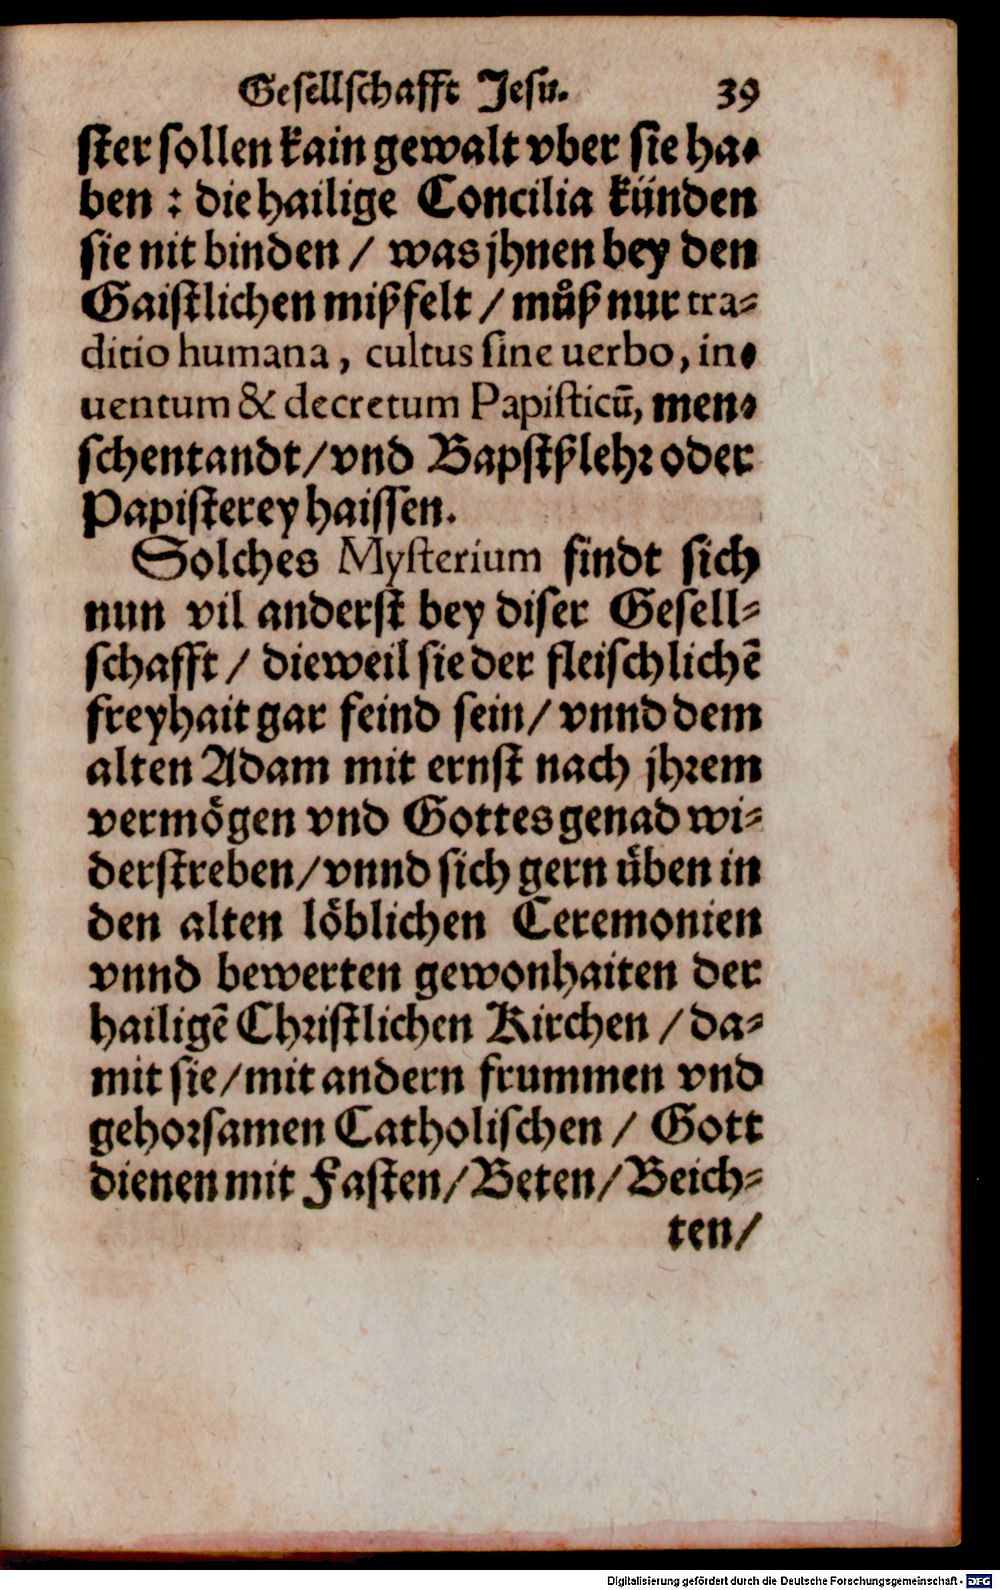 Gesellschafft Jesu. 39
ster sollen kain gewalt vber sie ha-
ben : die hailige Concilia künden
sie nit binden / was jhnen bey den
Gaistlichen mißfelt / můß nur tra-
ditio humana, cultus sine uerbo, in-
uentum & decretum Papisticū, men-
schentandt / vnd Bapstßlehr oder
Papisterey haissen.
Solches Mysterium findt sich
nun vil anderst bey diser Gesell-
schafft / dieweil sie der fleischlichē
freyhait gar feind sein / vnnd dem
alten Adam mit ernst nach jhrem
vermögen vnd Gottes genad wi-
derstreben / vnnd sich gern üben in
den alten löblichen Ceremonien
vnnd bewerten gewonhaiten der
hailigē Christlichen Kirchen / da-
mit sie / mit andern frummen vnd
gehorsamen Catholischen / Gott
dienen mit Fasten / Beten / Beich-
ten /
Digitalisierung gefördert durch die Deutsche Forschungsgemeinschaft - DFG